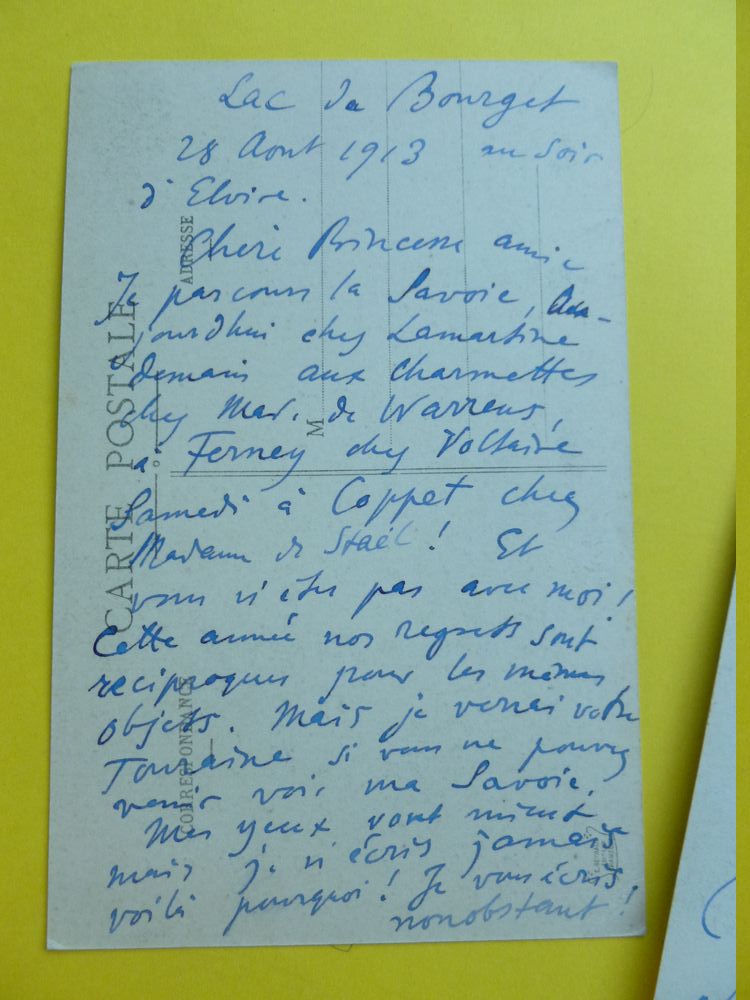 Lac du Bourget
28 Aout 1913 au soir
d'Elvire.
Chere Princesse amie
Je parcours la Savoie, Au-
jourdhui chez Lamartine
demain aux Charmettes
chez Mad. de Warrens,
à Ferney chez Voltaire
Samedi à Coppet chez
Madame de Staël! Et
vous n'êtes pas avec moi!
Cette année nos regrets sont
reciproques pour les mêmes
objets. Mais je verrai votre
Touraine si vous ne pouvez
venir voir ma Savoie.
Mes yeux vont mieux
mais je n'écris jamais
voilà pourquoi! Je vous écris
nonobstant!
CARTE POSTALE
CORRESPONDANCE
ADRESSE
M